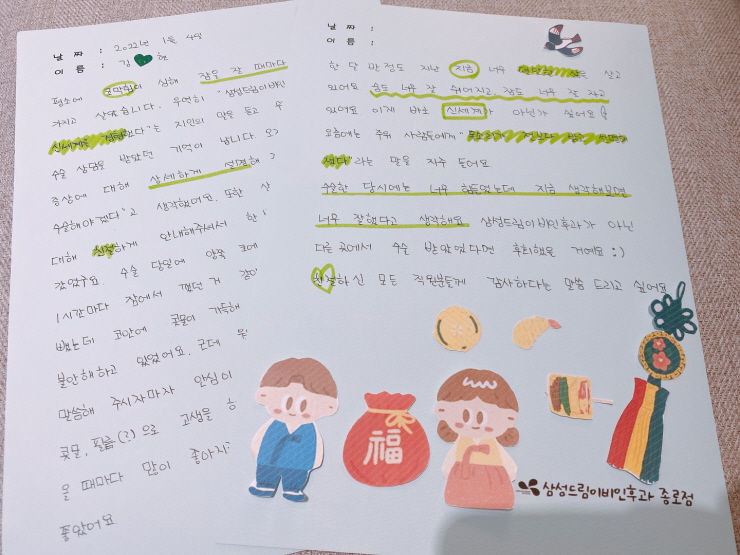 날 짜 : 2022년 1월 4일
이 름 : 김 해
평소에 코막힘이 심해 잠을 잘 때마다
가지고 살았습니다. 우연히 "삼성드림이비인
신세계를 경험했다"는 지인의 말을 듣고
수술 상담을 받았던 기억이 납니다.
증상에 대해 상세하게 설명해
수술해야겠다"고 생각했어요. 또한
대해 친절하게 안내해주셔서
갔었구요. 수술 당일에 양쪽 코에
1시간마다 잠에서 깼던 거
뺐는데 코안에 콧물이 가득해
불안해하고 있었어요. 근데
말씀해 주시자마자 안심이
콧물, 필름(?)으로 고생을
올 때마다 많이 좋아지
좋았어요
날 짜 :
이 름 :
한 달 반정도 지난 지금 너무 살고
있어요 숨도 너무 잘 쉬어지고, 잠도 너무 잘 자고
있어요 이게 바로 신세계가 아닌가 싶어요
요즘에는 주위 사람들에게 "
"라는 말을 자주 들어요
수술한 당시에는 너무 힘들었는데 지금 생각해보면
너무 잘했다고 생각해요 삼성드림이비인후과가 아닌
다른 곳에서 수술 받았었다면 후회했을 거예요 :)
친절하신 모든 직원분들께 감사하다는 말씀 드리고 싶어요
福
삼성드림이비인후과 종로점